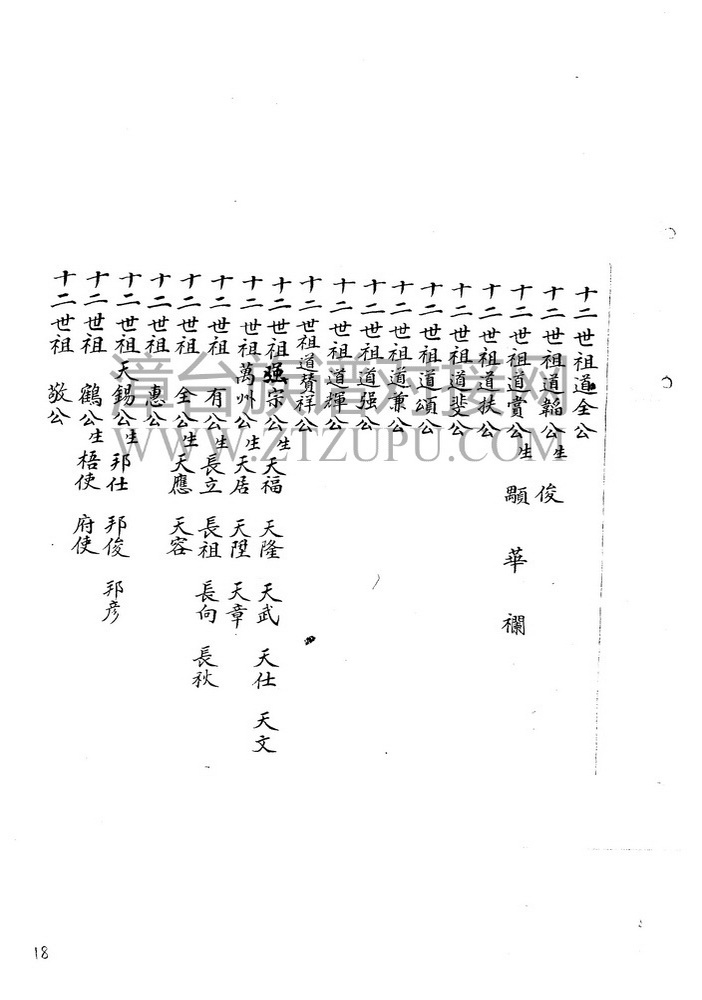 十二世祖道全公
十二世祖道韜公生 俊
十二世祖道賞公生 顯 華 襴
十二世祖道扶公
十二世祖道斐公
十二世祖道頌公
十二世祖道兼公
十二世祖道强公
十二世祖道輝公
十二世祖道贊祥公
十二世祖强宗公生 天福 天隆 天武 天仕 天文
十二世祖萬州公生 天居 天陞 天章
十二世祖 有公生 長立 長祖 長向 長秋
十二世祖 全公生 天應 天容
十二世祖 惠公
十二世祖天錫公生 邦仕 邦俊 邦彦
十二世祖 鶴公生 梧使 府使
十二世祖 敬公
漳台族谱对接网
WWW.ZTZUPU.COM
18